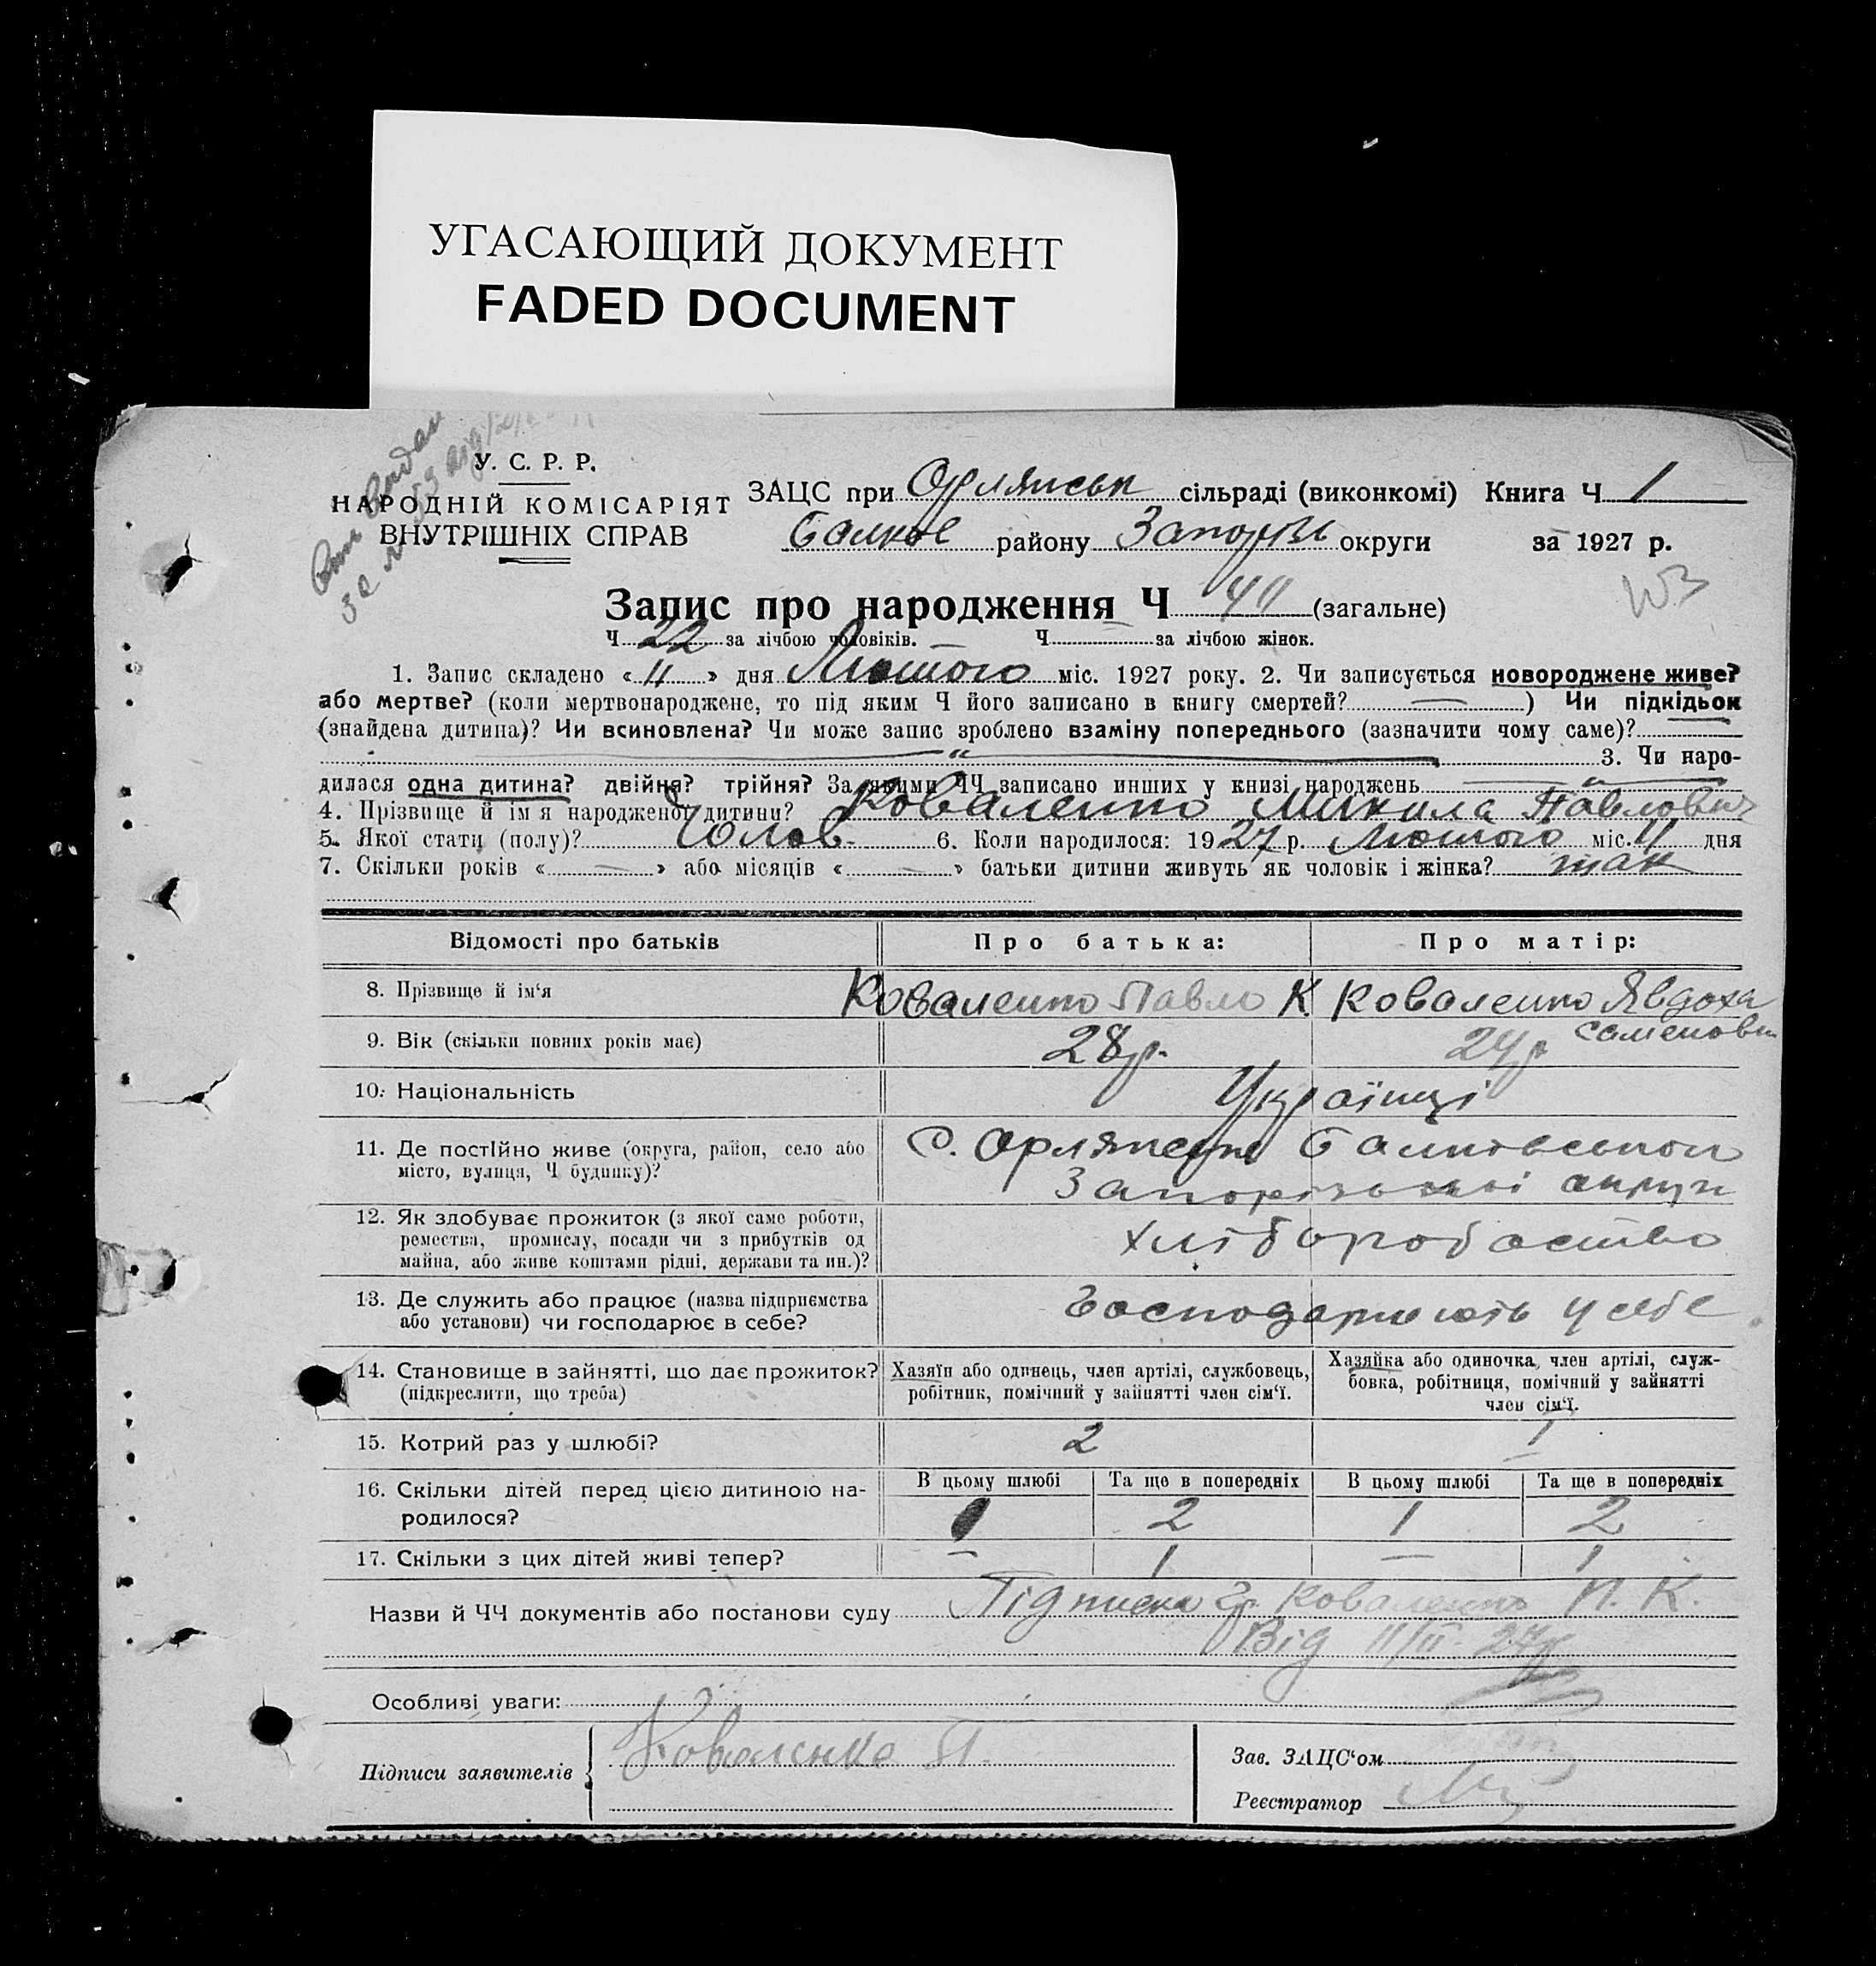 УГАСАЮЩИЙ ДОКУМЕНТ
FADED DOCUMENT
У. С. Р. Р.
НАРОДНІЙ КОМІСАРІЯТ
ВНУТРІШНІХ СПРАВ
ЗАЦС при Орлянськ сільраді (виконкомі) Книга Ч 1
району Запоріз округи за 1927 р.
Запис про народження Ч 40 (загальне)
Ч 22 за лічбою чоловіків. Ч — за лічбою жінок.
1. Запис складено « 11 » дня Лютого міс. 1927 року. 2. Чи записується новороджене живе?
або мертве? (коли мертвонароджене, то під яким Ч його записано в книгу смертей? — ) Чи підкідьок
(знайдена дитина)? Чи всиновлена? Чи може запис зроблено взаміну попереднього (зазначити чому саме)?
— " — 3. Чи наро-
дилася одна дитина? двійня? трійня? За якими ЧЧ записано инших у книзі народжень — " —
4. Прізвище й ім я народженої дитини? Коваленко Микола Павлович
5. Якої стати (полу)? Чолов. 6. Коли народилося: 1927 р. Лютого міс. 11 дня
7. Скільки років « — » або місяців « — » батьки дитини живуть як чоловік і жінка? так
Відомості про батьків Про батька: Про матір:
8. Прізвище й ім'я Коваленко Павло К Коваленко Явдоха
Семеновн
9. Вік (скільки повних років має) 28р. 24р
10. Національність Українці
11. Де постійно живе (округа, район, село або
місто, вулиця, Ч будинку)?
с. Орлянськ Балківського
Запорізької округи
12. Як здобуває прожиток (з якої саме роботи,
ремества, промислу, посади чи з прибутків од
майна, або живе коштами рідні, держави та ин.)?
хліборобство
13. Де служить або працює (назва підприємства
або установи) чи господарює в себе?
Господарюють у себе
14. Становище в зайнятті, що дає прожиток?
(підкреслити, що треба)
Хазяїн або одинець, член артілі, службовець,
робітник, помічний у зайнятті член сім'ї.
Хазяйка або одиночка, член артілі, служ-
бовка, робітниця, помічний у зайнятті
член сім'ї.
15. Котрий раз у шлюбі? 2 1
16. Скільки дітей перед цією дитиною на-
родилося?
В цьому шлюбі Та ще в попередніх В цьому шлюбі Та ще в попередніх
2 1 2
17. Скільки з цих дітей живі тепер? — 1 — 1
Назви й ЧЧ документів або постанови суду Підписка гр. Коваленко П. К.
Від 11/II 27р
Особливі уваги:
Підписи заявителів Коваленко П.
Зав. ЗАЦС'ом
Реєстратор